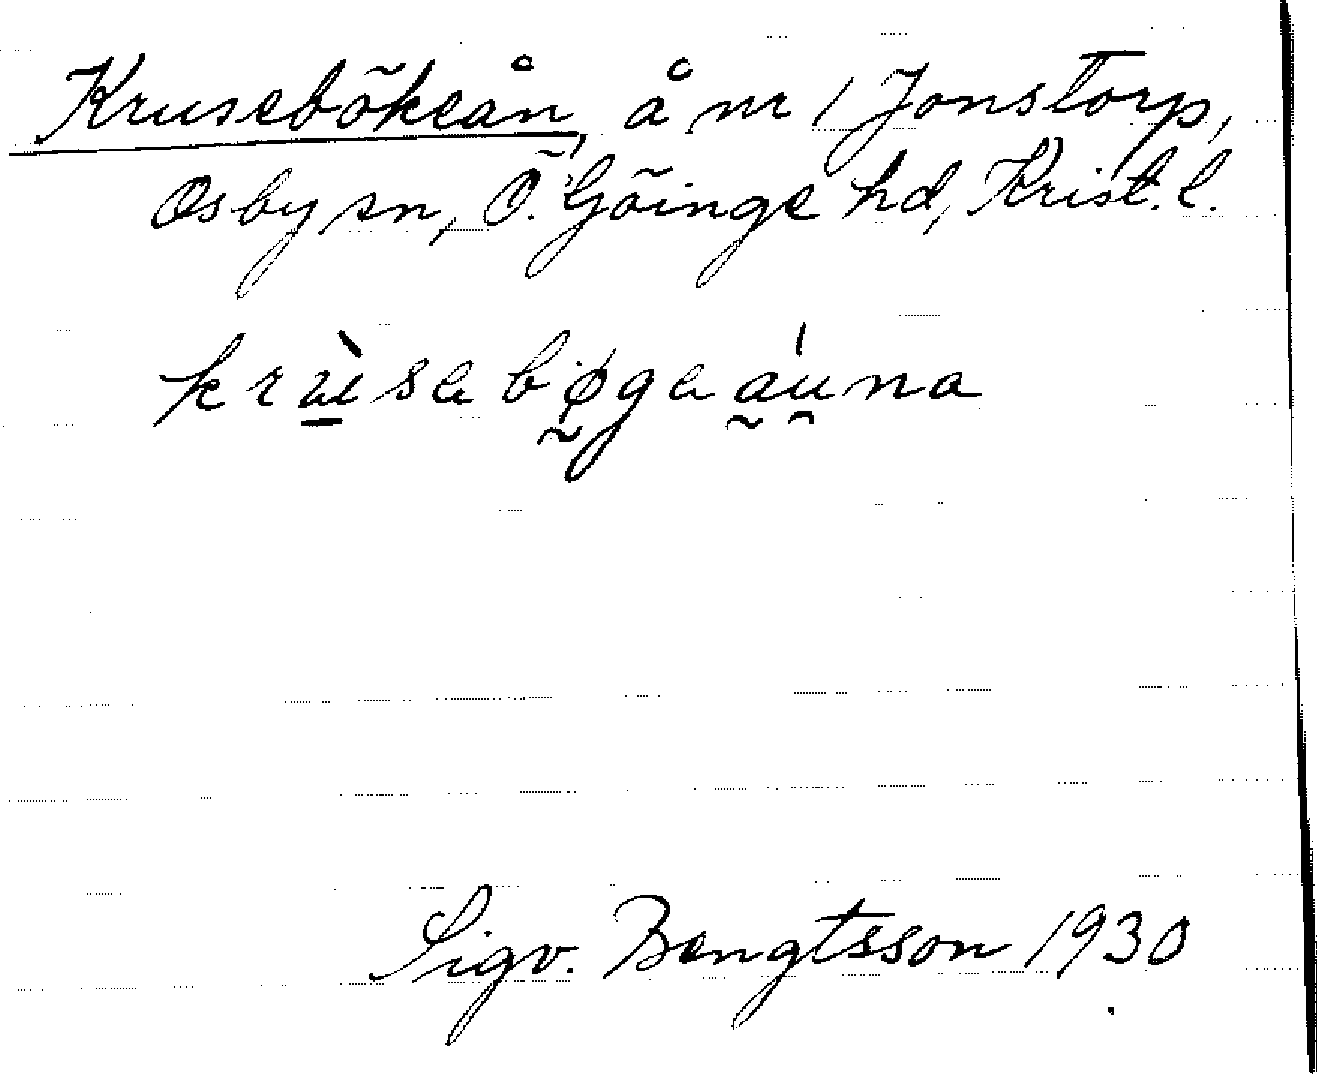 Krusebökeån, å nr 1 Jonstorp,
Osby sn, Ö. Göinge hd, Krist. l.
krùsebøgeaúna
Sigv. Bengtsson 1930